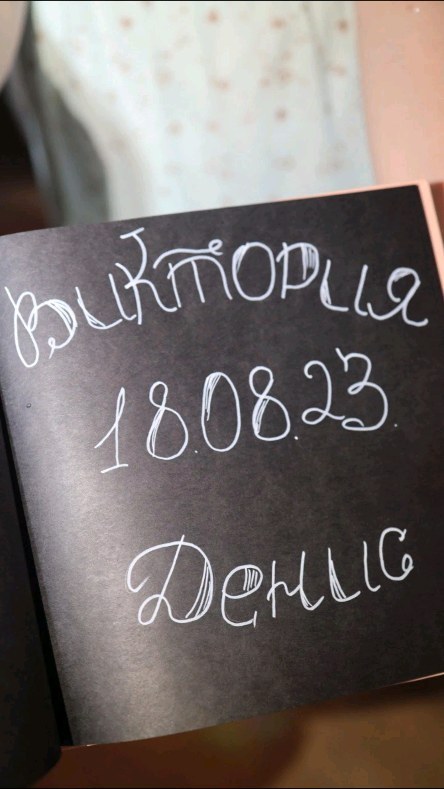 Виктория
18.08.23.
Денис